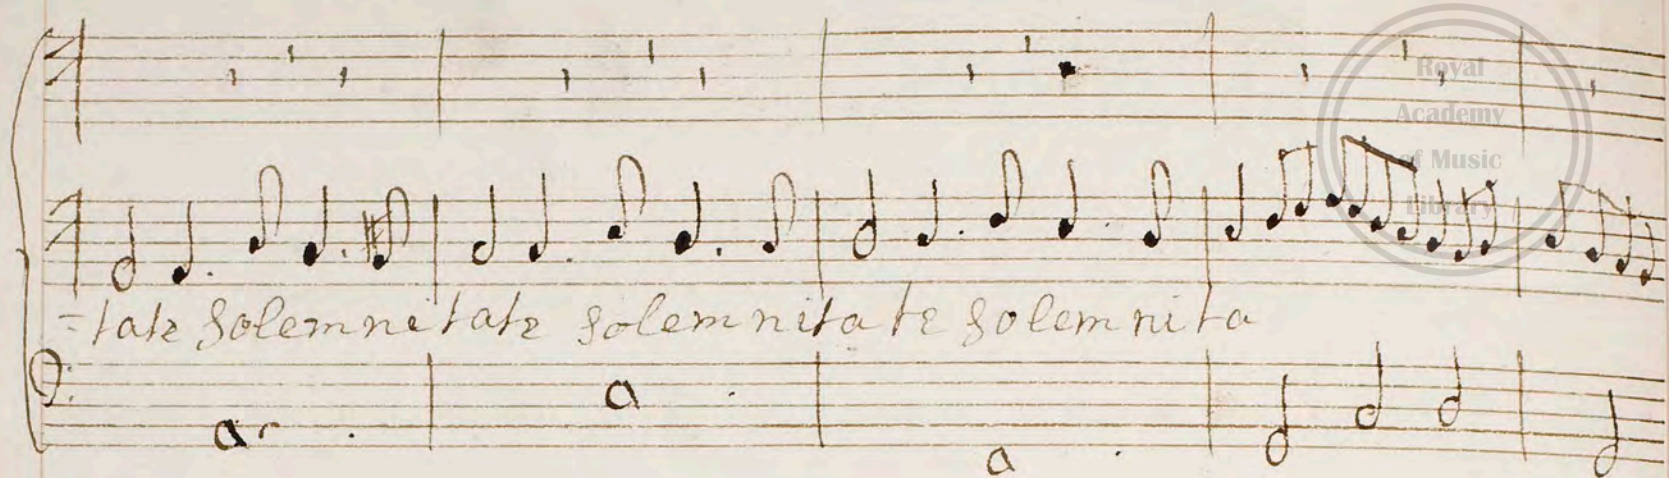 Royal
Academy
of Music
Library
-tate solemnitate solemnitate solemnita